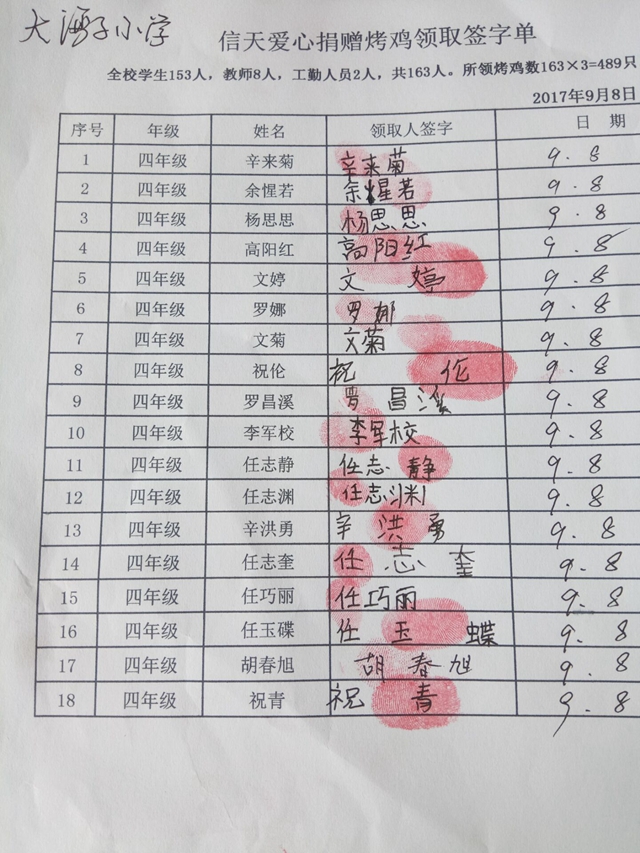 大湾子小学
信天爱心捐赠烤鸡领取签字单
全校学生153人，教师8人，工勤人员2人，共163人。所领烤鸡数163×3=489只
2017年9月8日
序号 年级 姓名 领取人签字 日 期
1 四年级 辛来菊 辛来菊 9.8
2 四年级 余惺若 余惺若 9.8
3 四年级 杨思思 杨思思 9.8
4 四年级 高阳红 高阳红 9.8
5 四年级 文婷 文婷 9.8
6 四年级 罗娜 罗娜 9.8
7 四年级 文菊 文菊 9.8
8 四年级 祝伦 祝伦 9.8
9 四年级 罗昌溪 罗昌溪 9.8
10 四年级 李军校 李军校 9.8
11 四年级 任志静 任志静 9.8
12 四年级 任志渊 任志渊 9.8
13 四年级 辛洪勇 辛洪勇 9.8
14 四年级 任志奎 任志奎 9.8
15 四年级 任巧丽 任巧丽 9.8
16 四年级 任玉碟 任玉蝶 9.8
17 四年级 胡春旭 胡春旭 9.8
18 四年级 祝青 祝青 9.8